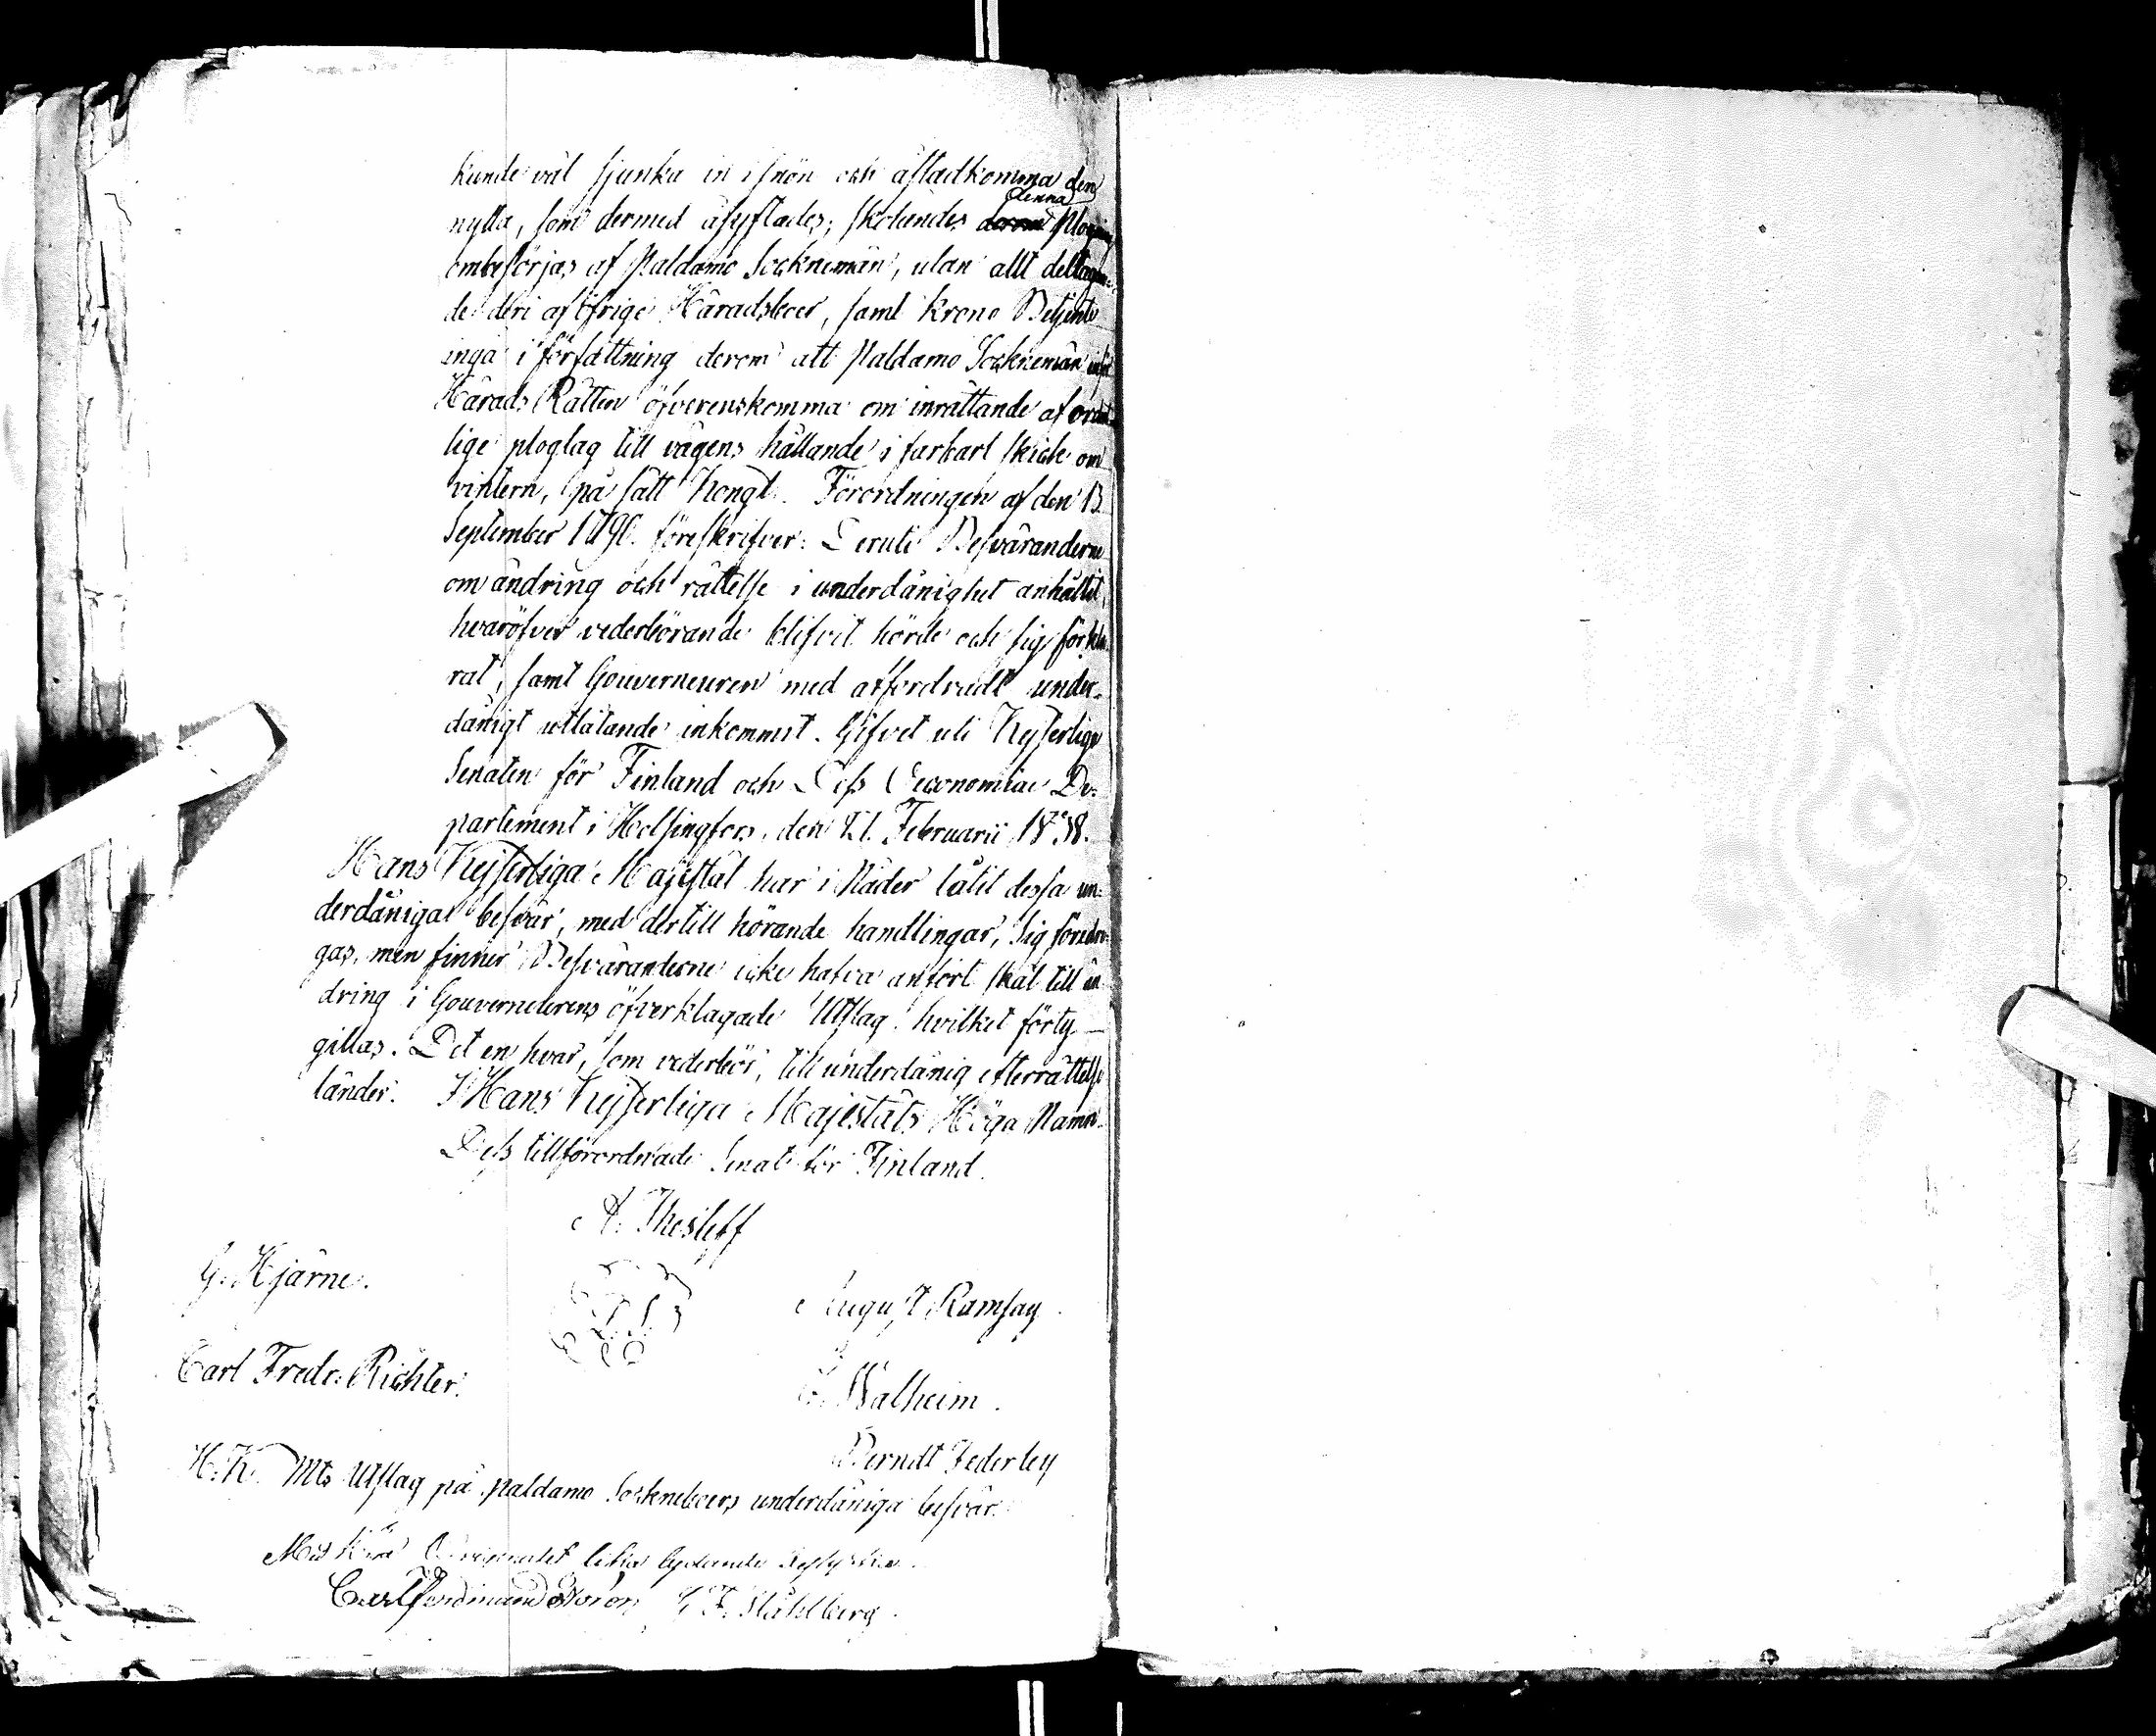 kunde väl sjunka in i snön och åstadkomma den
nytta, som dermed åsyftades; skolandes denna Plogning
ombesörjas af Paldamo Sockneman, utan allt deltagan-
de deri af öfrige Häradsboer, samt Krono Betjente
ingå i författning derom att Paldamo Sockneman inför
Härads Rätten öfverenskomma om inrättande af ordent-
lige ploglag till vägens hållande i farbart skick om
vintern, på sätt Kongl. Förordningen af den 13
September 1796. föreskrifver: Deruti Besväranderne
om ändring och rättelse i underdånighet anhållit,
hvaröfver vederbörande blifvit hörde och sig förkla-
rat, samt Gouverneuren med affordradt under-
dånigt utlåtande inkommit. Gifvet uti Kejserliga
Senaten för Finland och Dess Oeconomiae De-
partement i Helsingfors, den 21. Februarii 1838.
Hans Kejserliga Majestät har i Nåder låtit dessa un-
derdåniga besvär, med dertill hörande handlingar, Sig föredra-
gas, men finner Besväranderne icke hafva anfört skäl till än-
dring i Gouverneurens öfverklagade Utslag: hvilket förty
gillas. Det en hvar, som vederbör, till underdånig efterrättelse
länder. I Hans Kejserliga Majestäts Höga Namn
Dess tillförordnade Senat för Finland.
A. Thesleff
G. Hjärne.
August Ramsay.
Carl Fredr: Richter.
Walheim.
Berndt Federley
H. K. Mts Utslag på Paldamo Sockneboers underdåniga besvär.
Originalet lika lydande
Carl Ferdinand G F. Ståhlberg.